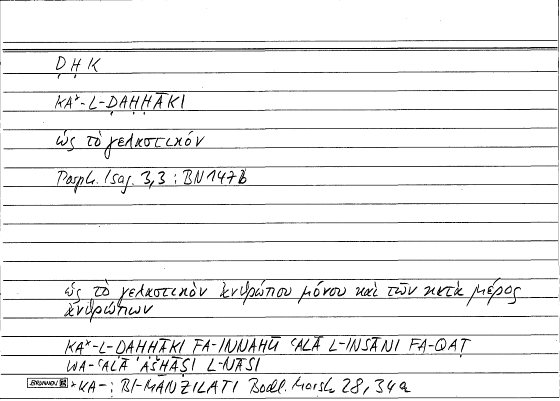 Ḍ Ḥ K
KAˣ-L-ḌAḤḤĀKI
ὡς τὸ γελαστικόν
Porph. Isag. 3,3 : BN 147b
ὡς τὸ γελαστικὸν ἀνθρώπου μόνου καὶ τῶν κατὰ μέρος
ἀνθρώπων
KAˣ-L-ḌAḤḤĀKI FA-INNAHŪ ʿALĀ L-INSĀNI FA-QAṬ
WA-ʿALĀ ʾAŠḪĀṢI L-NĀSI
BRUNNEN ˣKA- : BI-MANZILATI Bodl. Marsh 28, 34a